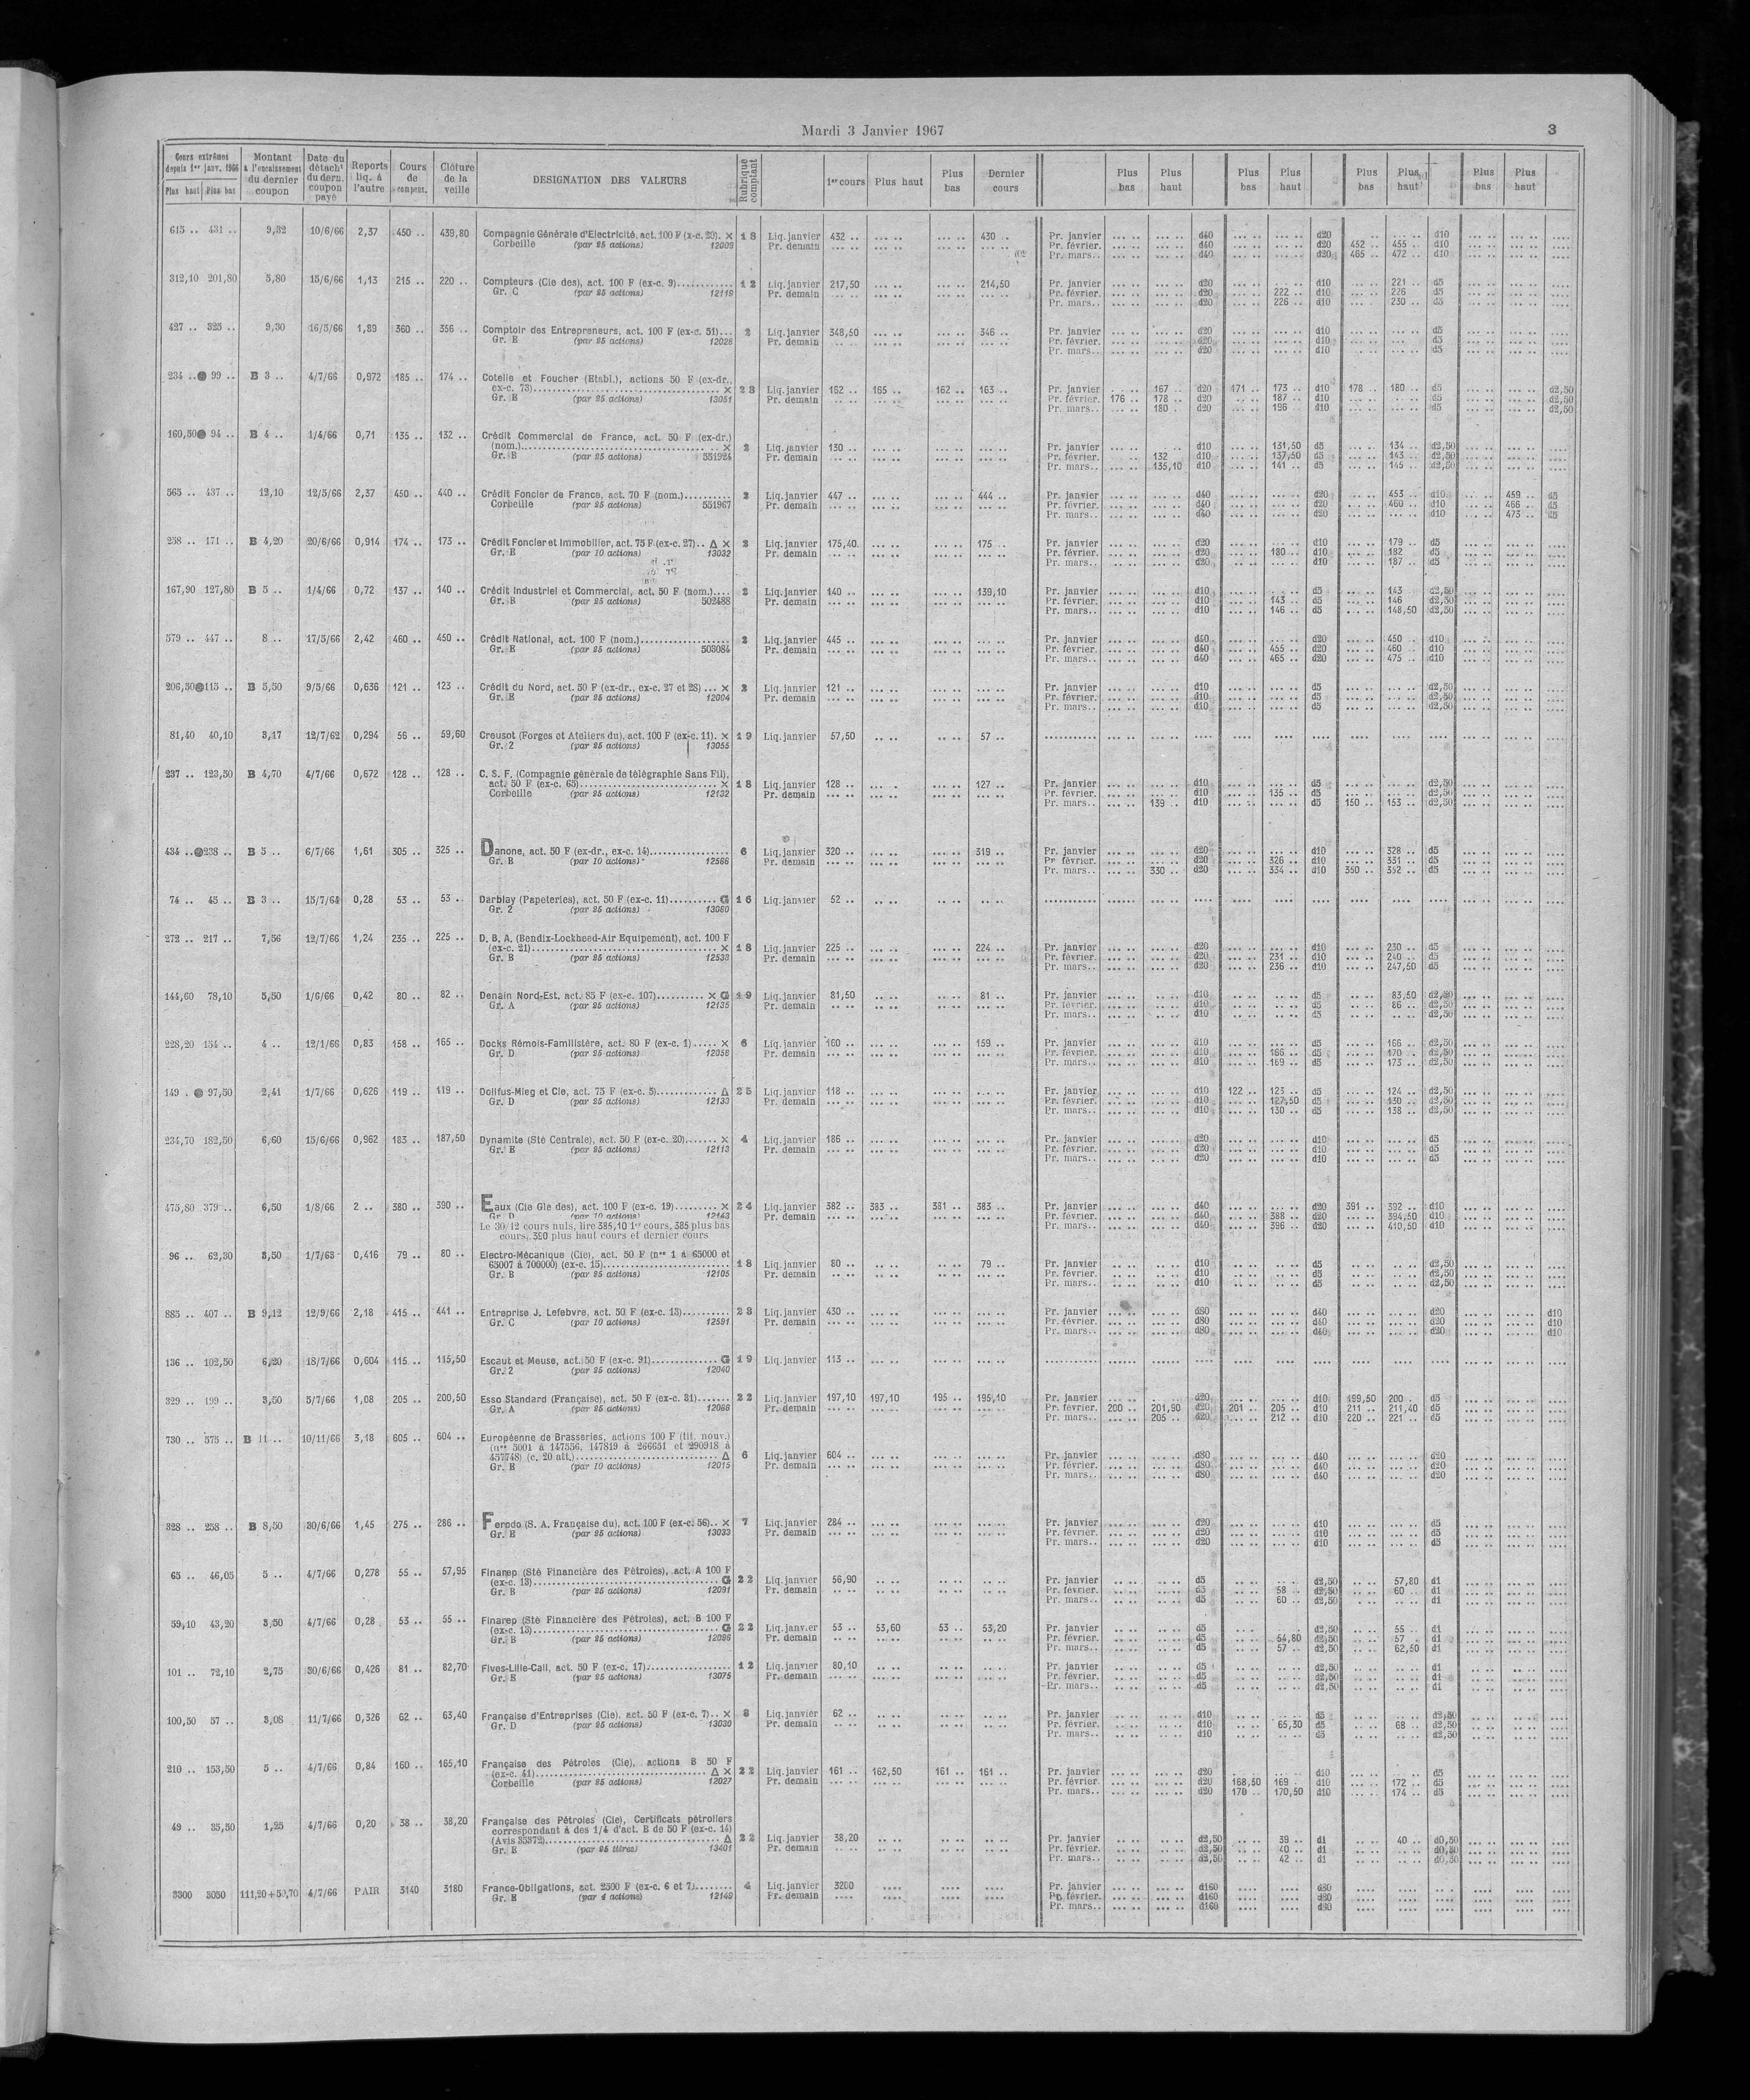 Mardi 3 Janvier 1967
3
Cours extrêmes depuis 1er janv. 1966 Plus haut Plus bas Montant à l'encaissement du dernier coupon Date du détacht du dern. coupon payé Reports liq. à l'autre Cours de compens. Clôture de la veille DESIGNATION DES VALEURS Rubrique comptant 1er cours Plus haut Plus bas Dernier cours Plus bas Plus haut Plus bas Plus haut Plus bas Plus haut Plus bas Plus haut
615 .. 431 .. 9,32 10/6/66 2,37 450 .. 439,80 Compagnie Générale d'Electricité, act. 100 F (x-c. 29). × 18 Liq. janvier 432 .. 430 .. Pr. janvier d40 d20 d10
Corbeille (par 25 actions) 12009 Pr. demain Pr. février. d40 d20 452 .. 455 .. d10
Pr. mars.. d40 d20 465 .. 472 .. d10
312,10 201,80 5,80 15/6/66 1,13 215 .. 220 .. Compteurs (Cie des), act. 100 F (ex-c. 9) 12 Liq. janvier 217,50 214,50 Pr. janvier d20 d10 221 .. d5
Gr. C (par 25 actions) 12119 Pr. demain Pr. février. d20 222 .. d10 226 d5
Pr. mars.. d20 226 .. d10 230 .. d5
427 .. 325 .. 9,30 16/5/66 1,89 360 .. 356 .. Comptoir des Entrepreneurs, act. 100 F (ex-c. 51)... 2 Liq. janvier 348,50 346 .. Pr. janvier d20 d10 d5
Gr. E (par 25 actions) 12028 Pr. demain Pr. février. d20 d10 d5
Pr. mars.. d20 d10 d5
234 .. 99 .. B 3 .. 4/7/66 0,972 185 .. 174 .. Cotelle et Foucher (Etabl.), actions 50 F (ex-dr.,
ex-c. 73) × 23 Liq. janvier 162 .. 165 .. 162 .. 163 .. Pr. janvier 167 .. d20 171 .. 173 .. d10 178 .. 180 .. d5 d2,50
Gr. E (par 25 actions) 13051 Pr. demain Pr. février. 176 .. 178 .. d20 187 .. d10 d5 d2,50
Pr. mars.. 180 . d20 196 d10 d5 d2,50
160,50 94 .. B 4 .. 1/4/66 0,71 135 .. 132 .. Crédit Commercial de France, act. 50 F (ex-dr.)
(nom.) × 2 Liq. janvier 130 .. Pr. janvier d10 131,50 d5 134 .. d2,50
Gr. B (par 25 actions) 551924 Pr. demain Pr. février. 132 d10 137,50 d5 143 .. d2,50
Pr. mars.. 135,10 d10 141 .. d5 145 .. d2,50
565 .. 437 .. 12,10 12/5/66 2,37 450 .. 440 .. Crédit Foncier de France, act. 70 F (nom.) 2 Liq. janvier 447 .. 444 .. Pr. janvier d40 d20 453 .. d10 459 .. d5
Corbeille (par 25 actions) 551967 Pr. demain Pr. février. d40 d20 460 .. d10 466 .. d5
Pr. mars.. d40 d20 d10 473 .. d5
258 .. 171 .. B 4,20 20/6/66 0,914 174 .. 173 .. Crédit Foncier et Immobilier, act. 75 F (ex-c. 27).. Δ × 2 Liq. janvier 175,40 175 .. Pr. janvier d20 d10 179 .. d5
Gr. E (par 10 actions) 13032 Pr. demain Pr. février. d20 180 .. d10 182 d5
Pr. mars.. d20 d10 187 .. d5
167,90 127,80 B 5 .. 1/4/66 0,72 137 .. 140 .. Crédit Industriel et Commercial, act. 50 F (nom.).... 2 Liq. janvier 140 .. 139,10 Pr. janvier d10 d5 143 d2,50
Gr. B (par 25 actions) 502488 Pr. demain Pr. février. d10 143 .. d5 146 d2,50
Pr. mars.. d10 146 .. d5 148,50 d2,50
579 .. 447 .. 8 .. 17/5/66 2,42 460 .. 450 .. Crédit National, act. 100 F (nom.) 2 Liq. janvier 445 .. Pr. janvier d40 d20 450 .. d10
Gr. E (par 25 actions) 503084 Pr. demain Pr. février. d40 455 .. d20 460 .. d10
Pr. mars.. d40 465 .. d20 475 .. d10
206,50 115 .. B 5,50 9/5/66 0,636 121 .. 123 .. Crédit du Nord, act. 50 F (ex-dr., ex-c. 27 et 28) ... × 2 Liq. janvier 121 .. Pr. janvier d10 d5 d2,50
Gr. E (par 25 actions) 12004 Pr. demain Pr. février. d10 d5 d2,50
Pr. mars.. d10 d5 d2,50
81,40 40,10 3,17 12/7/62 0,294 56 .. 59,60 Creusot (Forges et Ateliers du), act. 100 F (ex-c. 11). × 19 Liq. janvier 57,50 57 ..
Gr. 2 (par 25 actions) 13055
237 .. 123,50 B 4,70 4/7/66 0,672 128 .. 128 .. C. S. F. (Compagnie générale de télégraphie Sans Fil),
act. 50 F (ex-c. 65) × 18 Liq. janvier 128 .. 127 .. Pr. janvier d10 d5 d2,50
Corbeille (par 25 actions) 12132 Pr. demain Pr. février. d10 135 .. d5 d2,50
Pr. mars.. 139 .. d10 d5 150 .. 153 .. d2,50
434 .. 238 .. B 5 .. 6/7/66 1,61 305 .. 325 .. Danone, act. 50 F (ex-dr., ex-c. 14) 6 Liq. janvier 320 .. 319 .. Pr. janvier d20 d10 328 .. d5
Gr. B (par 10 actions) 12566 Pr. demain Pr. février. d20 326 .. d10 331 .. d5
Pr. mars.. 330 .. d20 334 .. d10 350 .. 352 .. d5
74 .. 45 .. B 3 .. 15/7/64 0,28 53 .. 53 .. Darblay (Papeteries), act. 50 F (ex-c. 11) G 16 Liq. janvier 52 ..
Gr. 2 (par 25 actions) 13060
272 .. 217 .. 7,56 12/7/66 1,24 235 .. 225 .. D. B. A. (Bendix-Lockheed-Air Equipement), act. 100 F
(ex-c. 21) × 18 Liq. janvier 225 .. 224 .. Pr. janvier d20 d10 230 .. d5
Gr. B (par 25 actions) 12533 Pr. demain Pr. février. d20 231 .. d10 240 .. d5
Pr. mars.. d20 236 .. d10 247,50 d5
144,60 78,10 5,50 1/6/66 0,42 80 .. 82 .. Denain Nord-Est, act. 85 F (ex-c. 107) × G 19 Liq. janvier 81,50 81 .. Pr. janvier d10 d5 83,50 d2,50
Gr. A (par 25 actions) 12135 Pr. demain Pr. février. d10 d5 86 .. d2,50
Pr. mars.. d10 d5 d2,50
228,20 154 .. 4 .. 12/1/66 0,83 158 .. 165 .. Docks Rémois-Familistère, act. 80 F (ex-c. 1) × 6 Liq. janvier 160 .. 159 .. Pr. janvier d10 d5 166 .. d2,50
Gr. D (par 25 actions) 12058 Pr. demain Pr. février. d10 166 .. d5 170 .. d2,50
Pr. mars.. d10 169 .. d5 173 .. d2,50
149 . 97,50 2,41 1/7/66 0,626 119 .. 119 .. Dollfus-Mieg et Cie, act. 75 F (ex-c. 5) Δ 25 Liq. janvier 118 .. Pr. janvier d10 122 .. 123 .. d5 124 .. d2,50
Gr. D (par 25 actions) 12133 Pr. demain Pr. février. d10 127,50 d5 130 .. d2,50
Pr. mars.. d10 130 .. d5 138 .. d2,50
234,70 182,50 6,60 15/6/66 0,962 183 .. 187,50 Dynamite (Sté Centrale), act. 50 F (ex-c. 20) × 4 Liq. janvier 186 .. Pr. janvier d20 d10 d5
Gr. E (par 25 actions) 12113 Pr. demain Pr. février. d20 d10 d5
Pr. mars.. d20 d10 d5
475,80 379 .. 6,50 1/8/66 2 .. 380 .. 390 .. Eaux (Cie Gle des), act. 100 F (ex-c. 19) × 24 Liq. janvier 382 .. 383 .. 381 .. 383 .. Pr. janvier d40 d20 391 .. 392 .. d10
Gr. D (par 10 actions) 12143 Pr. demain Pr. février. d40 388 .. d20 394,50 d10
Le 30/12 cours nuls, lire 385,10 1er cours, 385 plus bas Pr. mars.. d40 396 .. d20 410,50 d10
cours, 390 plus haut cours et dernier cours
96 .. 62,30 3,50 1/7/63 0,416 79 .. 80 .. Electro-Mécanique (Cie), act. 50 F (nos 1 à 65000 et
65007 à 700000) (ex-c. 15) 18 Liq. janvier 80 .. 79 .. Pr. janvier d10 d5 d2,50
Gr. B (par 25 actions) 12105 Pr. demain Pr. février. d10 d5 d2,50
Pr. mars.. d10 d5 d2,50
885 .. 407 .. B 9,12 12/9/66 2,18 415 .. 441 .. Entreprise J. Lefebvre, act. 50 F (ex-c. 13) 23 Liq. janvier 430 .. Pr. janvier d80 d40 d20 d10
Gr. C (par 10 actions) 12591 Pr. demain Pr. février. d80 d40 d20 d10
Pr. mars.. d80 d40 d20 d10
136 .. 102,50 6,20 18/7/66 0,604 115 .. 115,50 Escaut et Meuse, act. 50 F (ex-c. 91) G 19 Liq. janvier 113 ..
Gr. 2 (par 25 actions) 12040
329 .. 199 .. 3,50 5/7/66 1,08 205 .. 200,50 Esso Standard (Française), act. 50 F (ex-c. 31) 22 Liq. janvier 197,10 197,10 195 .. 195,10 Pr. janvier d20 d10 199,50 200 . d5
Gr. A (par 25 actions) 12066 Pr. demain Pr. février. 200 .. 201,90 d20 201 .. 205 .. d10 211 .. 211,40 d5
Pr. mars.. 205 .. d20 212 .. d10 220 .. 221 .. d5
730 .. 575 .. B 11 .. 10/11/66 3,18 605 .. 604 .. Européenne de Brasseries, actions 100 F (tit. nouv.)
(nos 5001 à 147556, 147819 à 266651 et 290918 à
457748) (c. 20 att.) Δ 6 Liq. janvier 604 .. Pr. janvier d80 d40 d20
Gr. E (par 10 actions) 12015 Pr. demain Pr. février. d80 d40 d20
Pr. mars.. d80 d40 d20
328 .. 258 .. B 8,50 30/6/66 1,45 275 .. 286 .. Ferodo (S. A. Française du), act. 100 F (ex-c. 56).. × 7 Liq. janvier 284 .. Pr. janvier d20 d10 d5
Gr. E (par 25 actions) 13033 Pr. demain Pr. février. d20 d10 d5
Pr. mars.. d20 d10 d5
65 .. 46,05 5 .. 4/7/66 0,278 55 .. 57,95 Finarep (Sté Financière des Pétroles), act. A 100 F
(ex-c. 13) G 22 Liq. janvier 56,90 Pr. janvier d5 d2,50 57,80 d1
Gr. B (par 25 actions) 12091 Pr. demain Pr. février. d5 58 .. d2,50 60 .. d1
Pr. mars.. d5 60 .. d2,50 d1
59,10 43,20 3,50 4/7/66 0,28 53 .. 55 .. Finarep (Sté Financière des Pétroles), act. B 100 F
(ex-c. 13) G 22 Liq. janv.er 53 .. 53,60 53 .. 53,20 Pr. janvier d5 d2,50 55 .. d1
Gr. B (par 25 actions) 12096 Pr. demain Pr. février. d5 54,80 d2,50 57 . d1
Pr. mars.. d5 57 .. d2,50 62,50 d1
101 .. 72,10 2,75 30/6/66 0,426 81 .. 82,70 Fives-Lille-Cail, act. 50 F (ex-c. 17) 12 Liq. janvier 80,10 Pr. janvier d5 d2,50 d1
Gr. E (par 25 actions) 13075 Pr. demain Pr. février. d5 d2,50 d1
Pr. mars.. d5 d2,50 d1
100,50 57 .. 3,08 11/7/66 0,326 62 .. 63,40 Française d'Entreprises (Cie), act. 50 F (ex-c. 7).. × 8 Liq. janvier 62 .. Pr. janvier d10 d5 d2,50
Gr. D (par 25 actions) 13030 Pr. demain Pr. février. d10 65,30 d5 68 .. d2,50
Pr. mars.. d10 d5 d2,50
210 .. 153,50 5 .. 4/7/66 0,84 160 .. 165,10 Française des Pétroles (Cie), actions B 50 F
(ex-c. 41) Δ × 22 Liq. janvier 161 .. 162,50 161 .. 161 .. Pr. janvier d20 d10 d5
Corbeille (par 25 actions) 12027 Pr. demain Pr. février. d20 168,50 169 d10 172 .. d5
Pr. mars.. d20 170 .. 170,50 d10 174 .. d5
49 .. 35,50 1,25 4/7/66 0,20 38 .. 38,20 Française des Pétroles (Cie), Certificats pétroliers
correspondant à des 1/4 d'act. B de 50 F (ex-c. 14)
(Avis 35372) Δ 22 Liq. janvier 38,20 Pr. janvier d2,50 39 .. d1 40 .. d0,50
Gr. E (par 25 titres) 13401 Pr. demain Pr. février. d2,50 40 .. d1 d0,50
Pr. mars.. d2,50 42 .. d1 d0,50
3300 3050 111,20+50,70 4/7/66 PAIR 3140 3180 France-Obligations, act. 2500 F (ex-c. 6 et 7) 4 Liq. janvier 3200 Pr. janvier d160 d80
Gr. E (par 4 actions) 12149 Pr. demain Pr. février. d160 d80
Pr. mars.. d160 d80